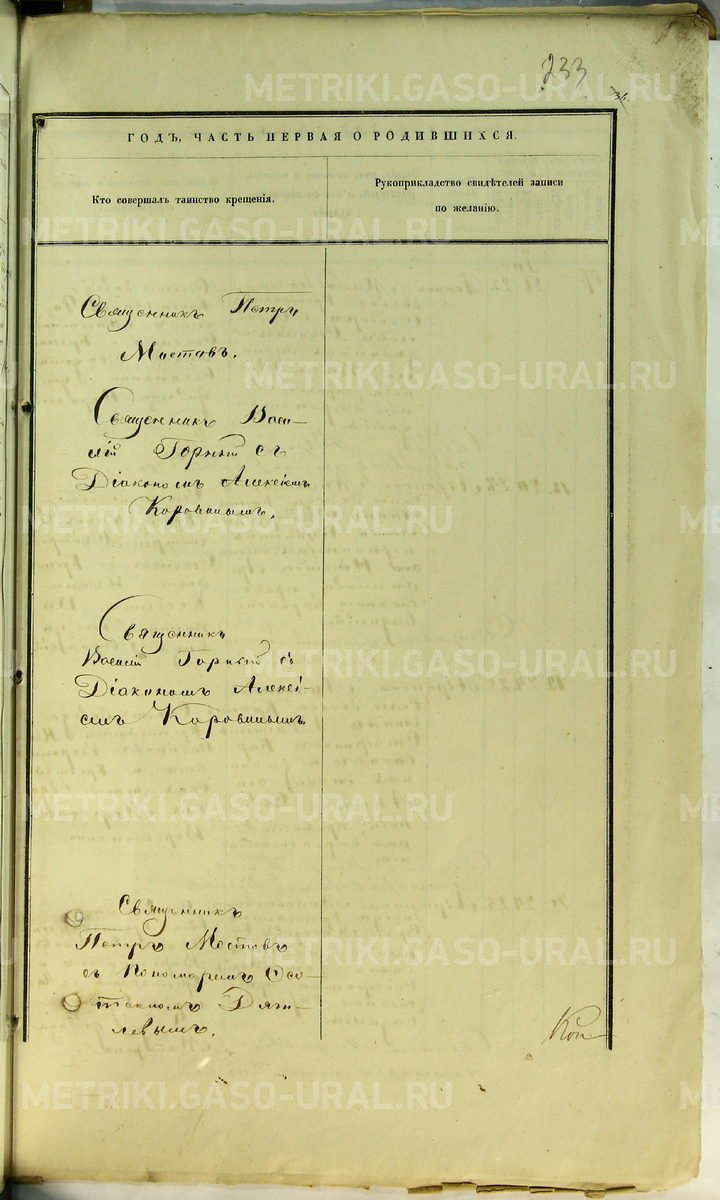 233
36.
ГОДЪ, ЧАСТЬ ПЕРВАЯ О РОДИВШИХСЯ.
Кто совершалъ таинство крещенія.
Рукоприкладство свидѣтелей записи
по желанію.
Священникъ Петръ
Мостовъ.
Священникъ Васи-
лій Горный съ
Діакономъ Алексіемъ
Коровинымъ.
Священникъ
Василій Горный съ
Діакономъ Алексі-
емъ Коровинымъ.
Священникъ
Петръ Мостовъ
съ Пономаремъ
Дяг-
левымъ.
METRIKI.GASO-URAL.RU